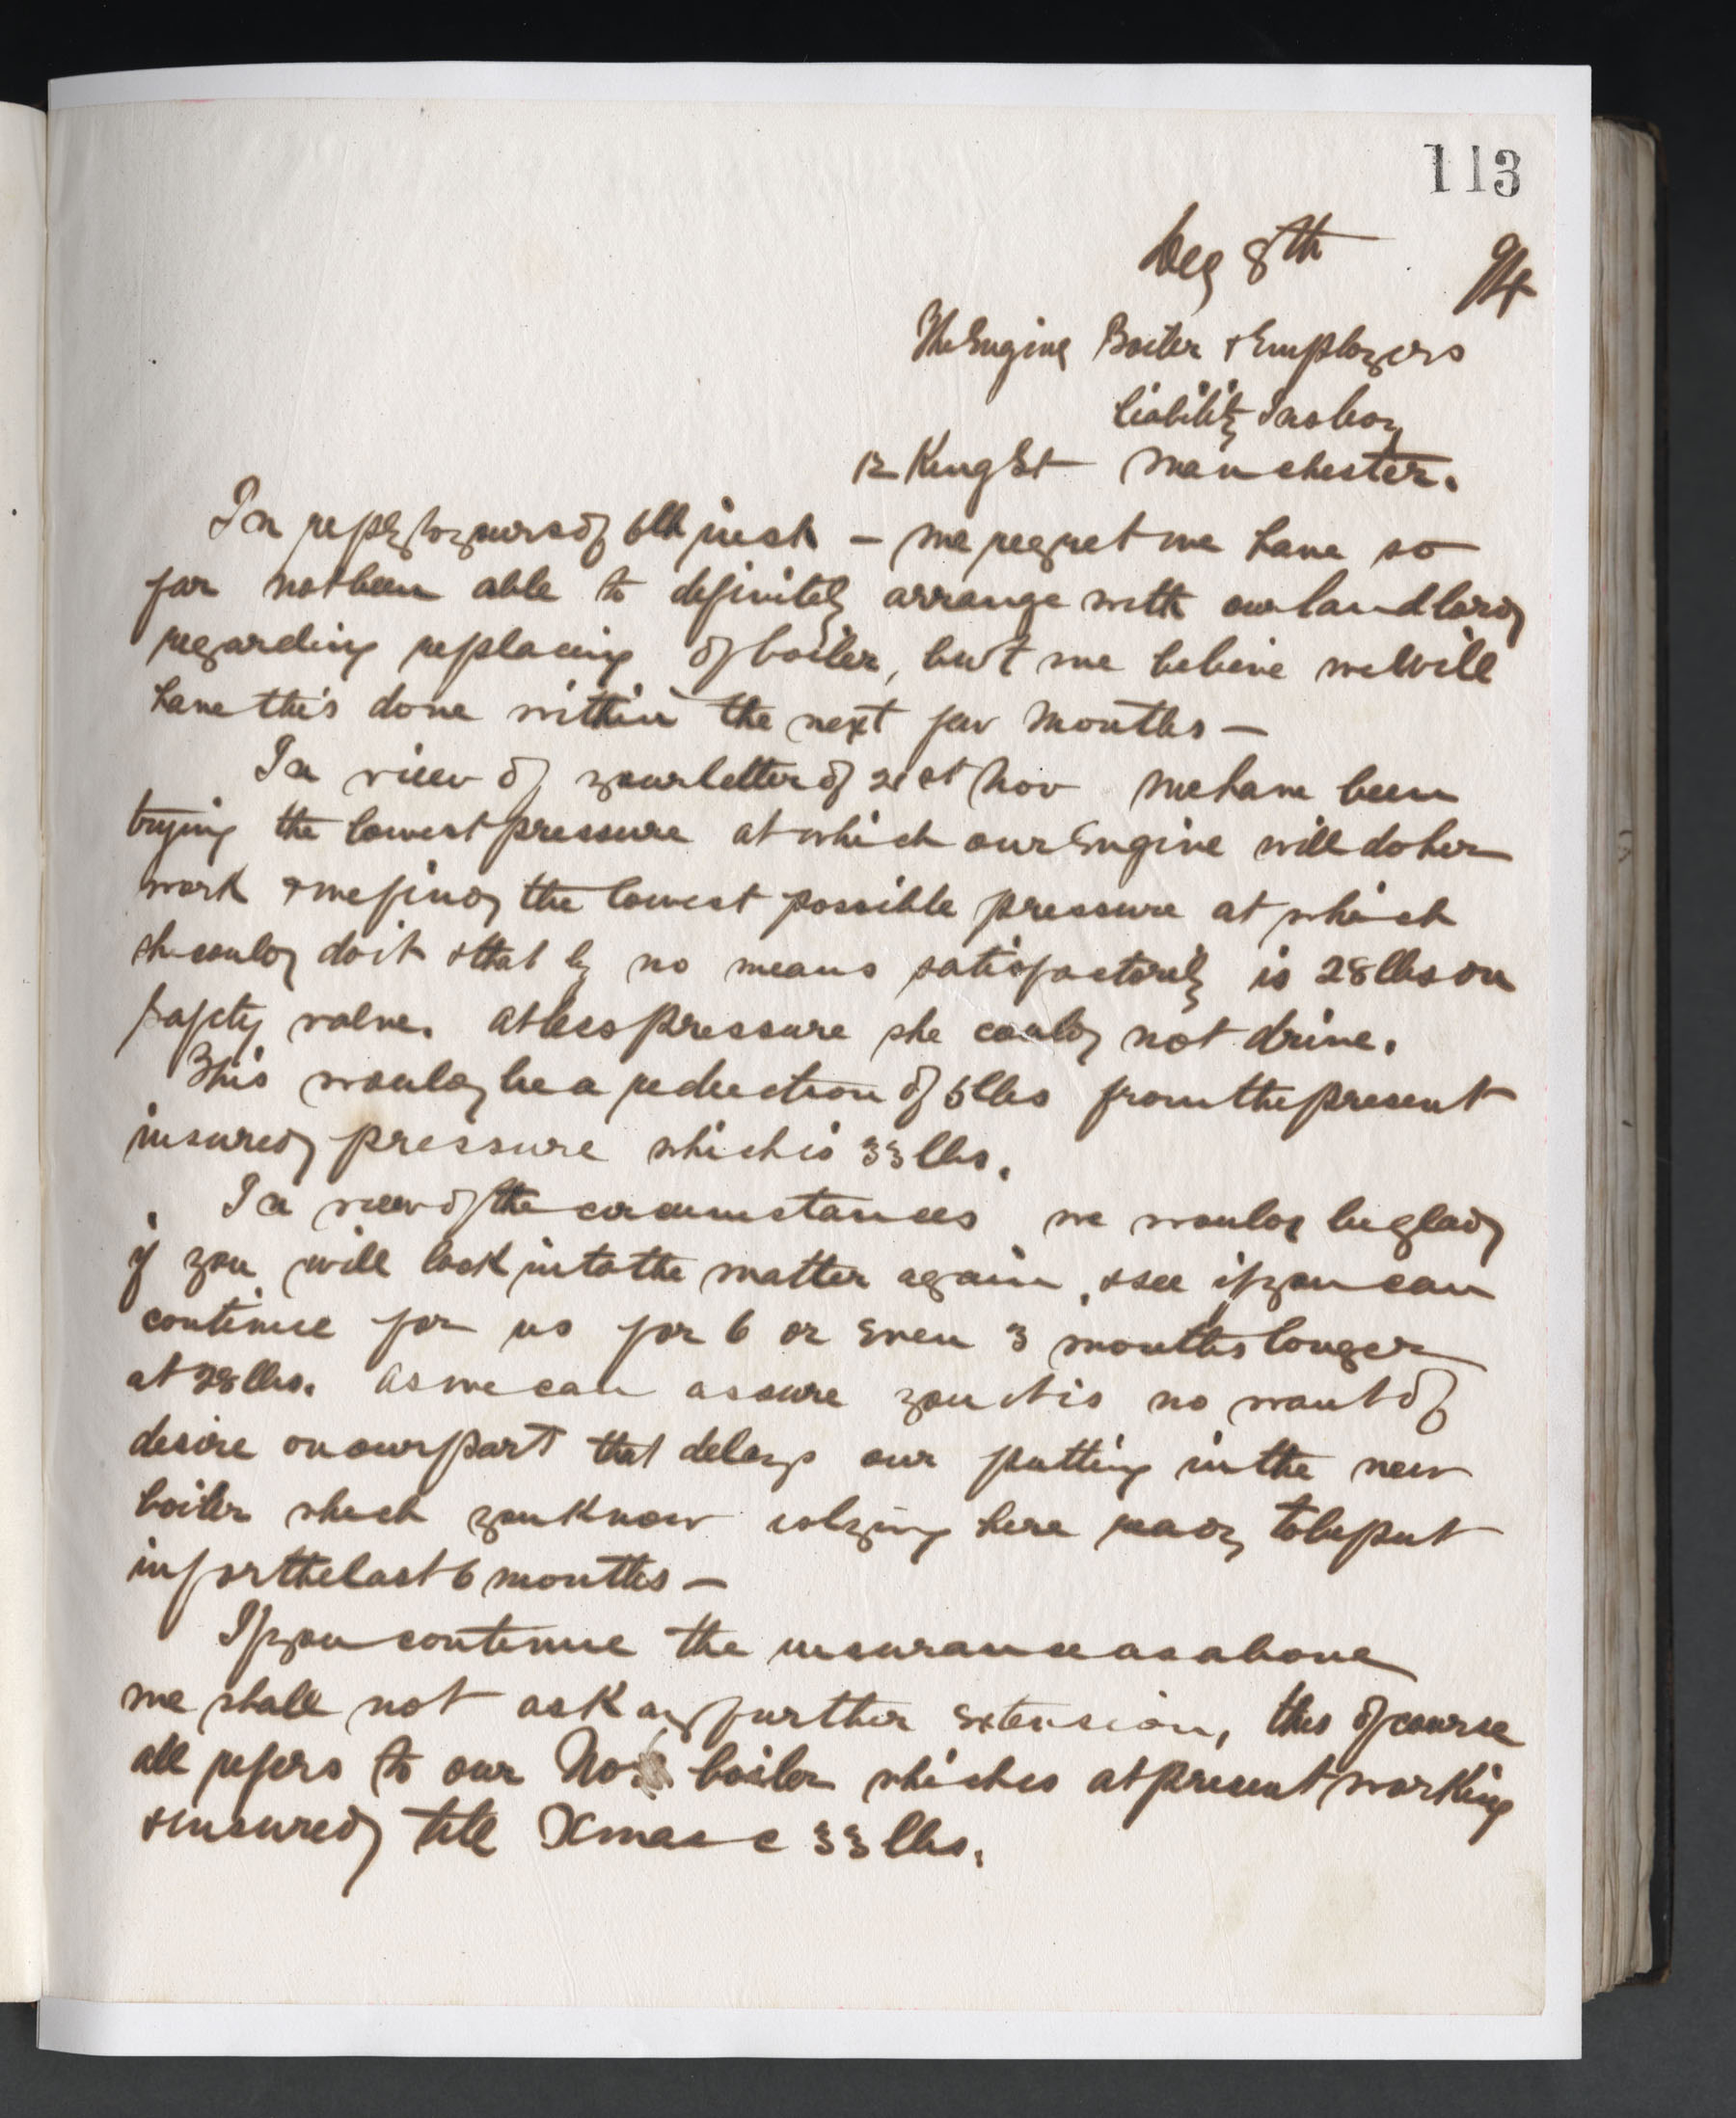 113
Dec 8th 94
The Engine Boiler & Employers
Liability Ins Coy
12 King St Manchester.
In reply to yours of 6th inst - we regret we have so
far not been able to definitely arrange with our landlord
regarding replacing of boiler, but we believe we will
have this done within the next few months -
In view of your letter of 21st Nov we have been
trying the lowest pressure at which our Engine will do her
work & we find the lowest possible pressure at which
she could do it & that by no means satisfactorily is 28 lbs on
safety valve. at less pressure she could not drive.
This would be a reduction of 5 lbs from the present
insured pressure which is 33 lbs.
In view of the circumstances we would be glad
if you will look into the matter again, & see if you can
continue for us for 6 or even 3 months longer
at 28 lbs. as we can assure you it is no want of
desire on our part that delays our putting in the new
boiler which you know is lying here ready to be put
in for the last 6 months -
If you continue the insurance as above
we shall not ask any further extension, this of course
all refers to our No. boiler which is at present working
& insured till Xmas @ 33 lbs.